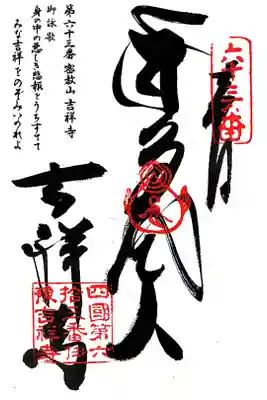 六十三番
吉祥寺
四國第六
拾三番伊
豫吉祥寺
第六十三番 密教山 吉祥寺
御詠歌
身の中の悪しき悲報をうちすてて
みな吉祥をのぞみいのれよ